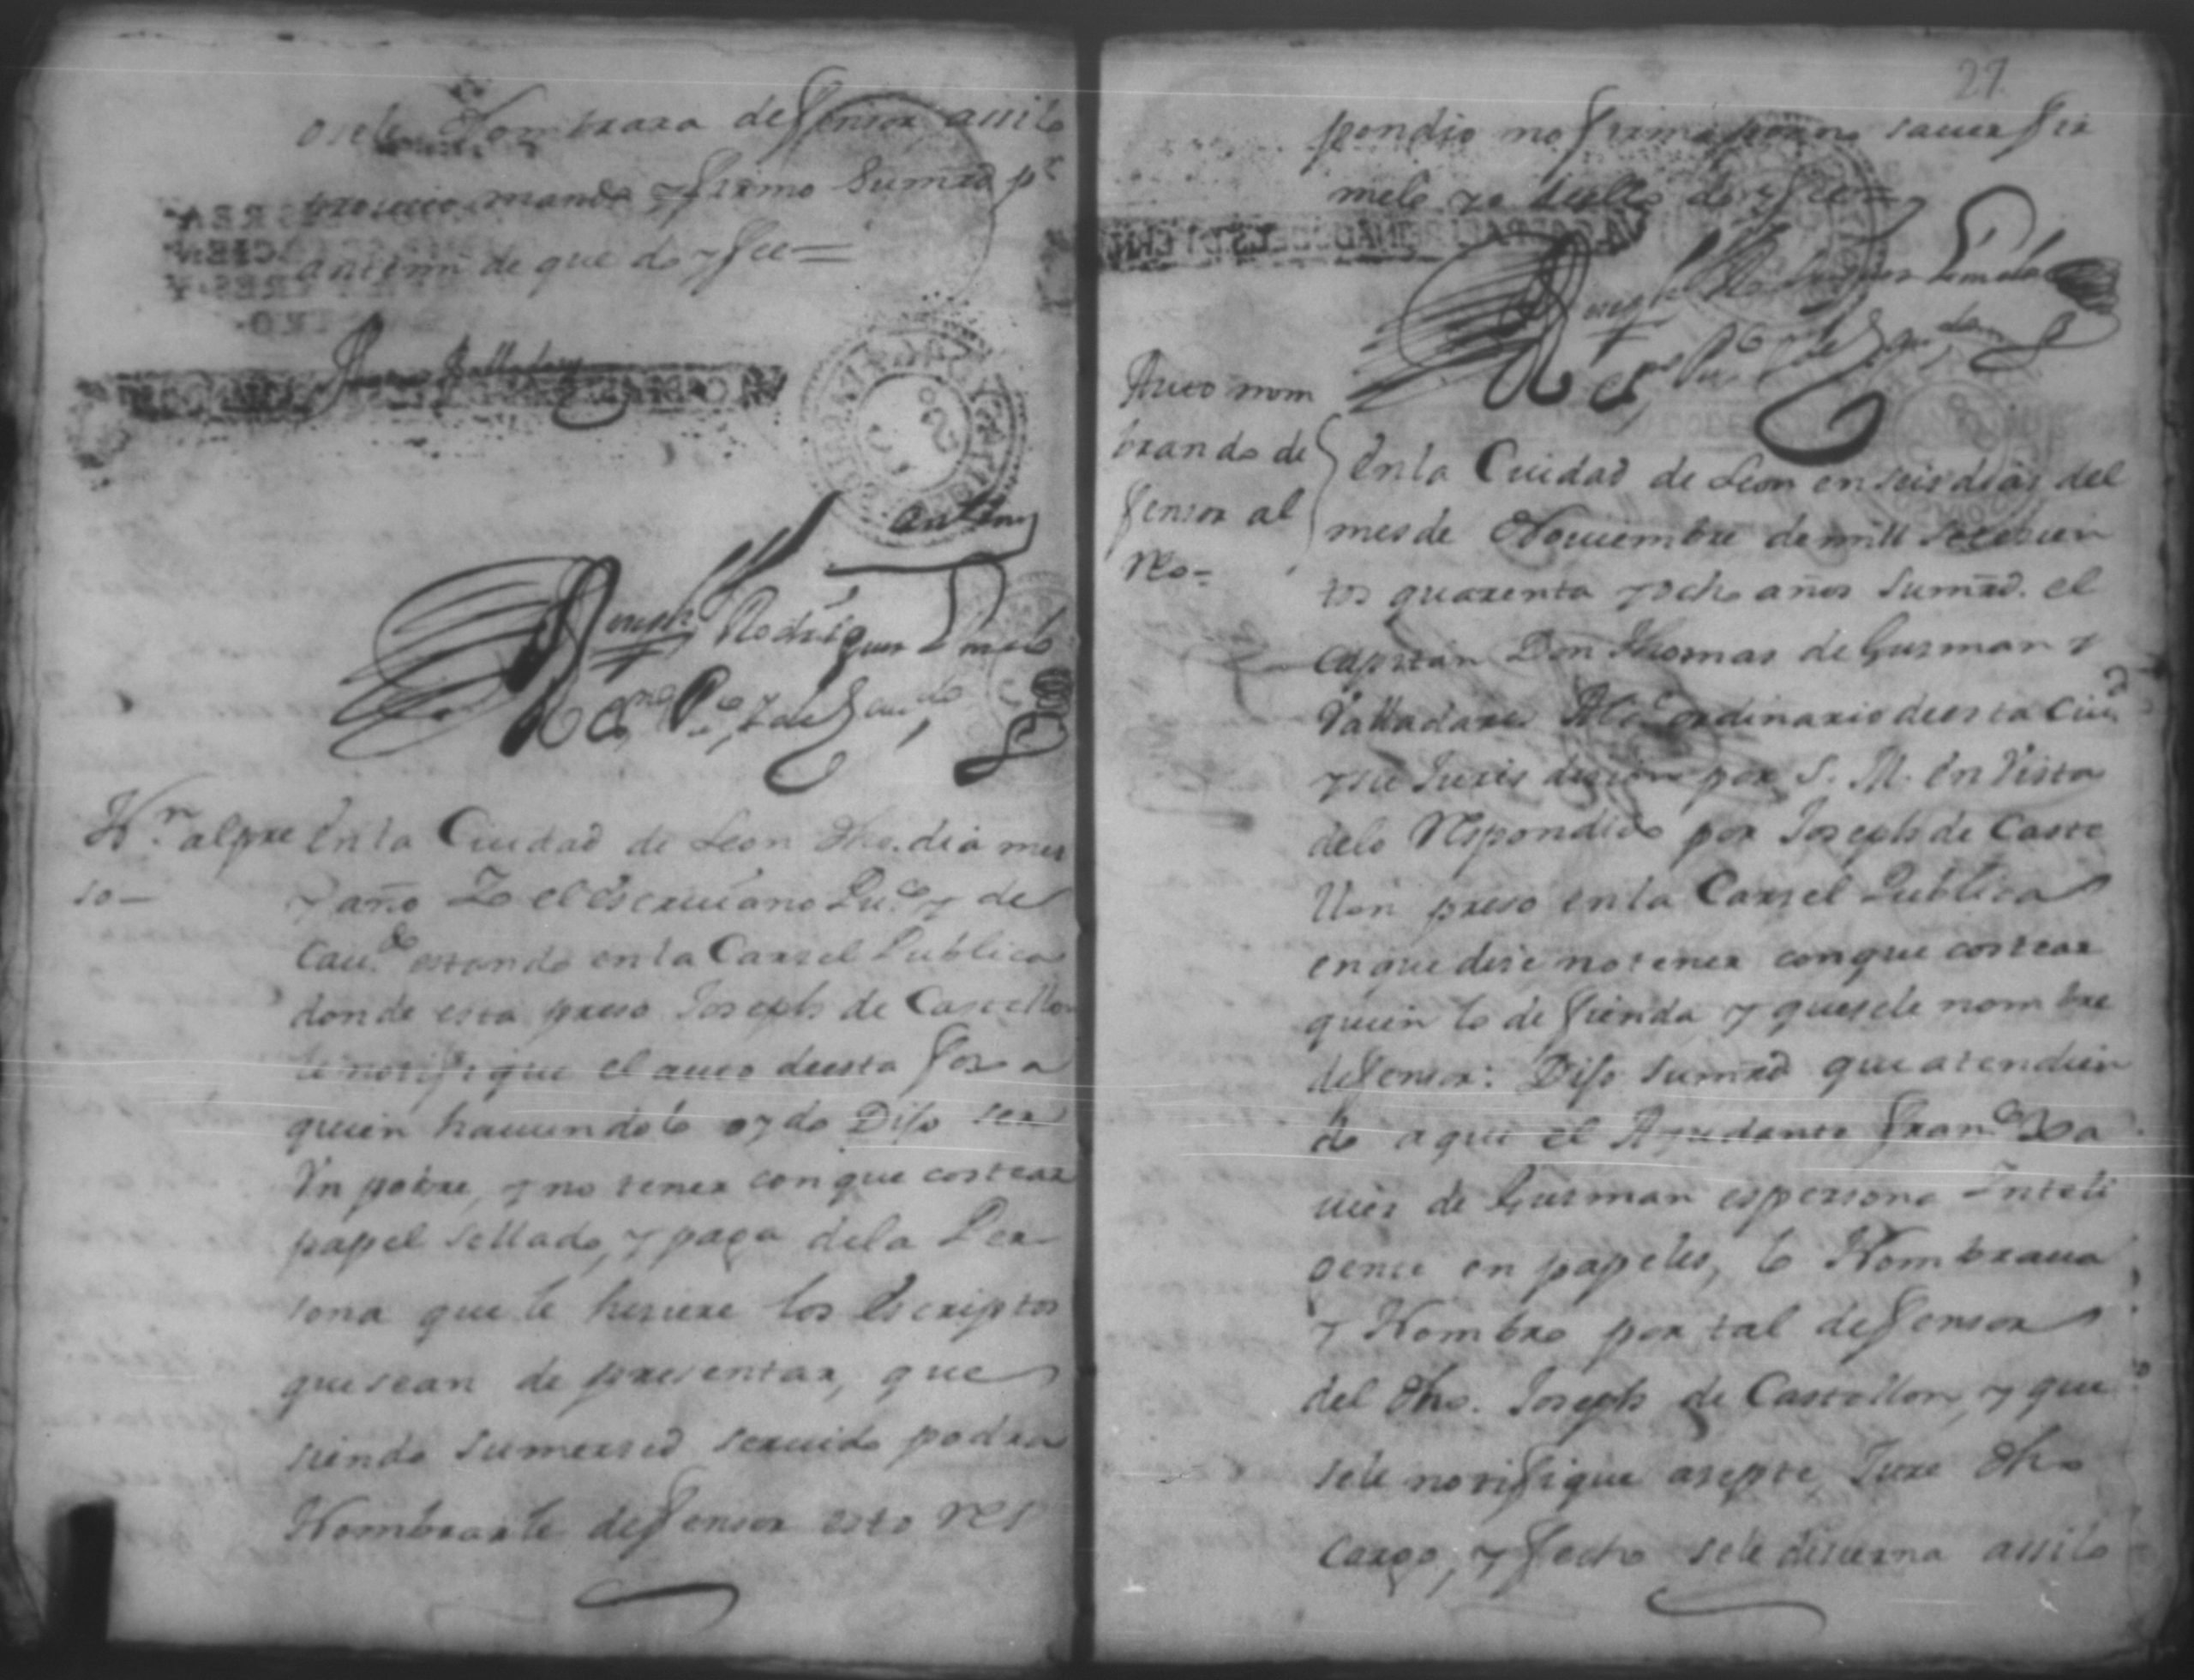 osele Nombrara deffensor assilo
proueio mando y firmo Sumrd pr
antemi de que doy fee=
Antemi
Joseph Rodriguez
Esno Puco y de Caudo
Nn. alpre
so—
en la Ciudad de Leon dho. dia mes
y año Io el escriuano Puco y de
Caudo estando en la Carsel Publica
donde esta preso Joseph de Castellon
le notifique el auto de esta foxa
quien hauiendolo oydo Dijo ser
Vn pobre, y no tener con que costear
papel sellado, y paga dela Per
sona que le hisiere los Escriptos
que sean de presentar, que
siendo Sumersed seruido podra
Nombrarle deffensor esto res
27
pondio no firmo porno sauer fir
melo yo de ello doy fee=
Joseph Rodriguez
Esno Puco y de Caudo
Auto nom
brando de
fensor al
Reo=
En la Cuidad de Leon en seis dias del
mes de Nouiembre de mill setesien
tos quarenta y ocho años Sumrd. el
Capitan Don Thomas de Gusman y
Valladares Alce ordinario de esta Ciud
y su Jurisdision por S. M. en Vista
delo Respondido por Joseph de Caste
llon preso en la Carsel Publica
en que dise no tener con que costear
quien lo defienda y que sele nombre
defensor: Dijo Sumrd que atendien
do a que el Ayudante Franco Xa
uier de Gusman es persona Inteli
gente en papeles, lo Nombraua
y Nombro por tal deffensor
del dho. Joseph de Castellon, y que
sele notifique asepte, Jure dho
Cargo, y fecho sele disierna assilo